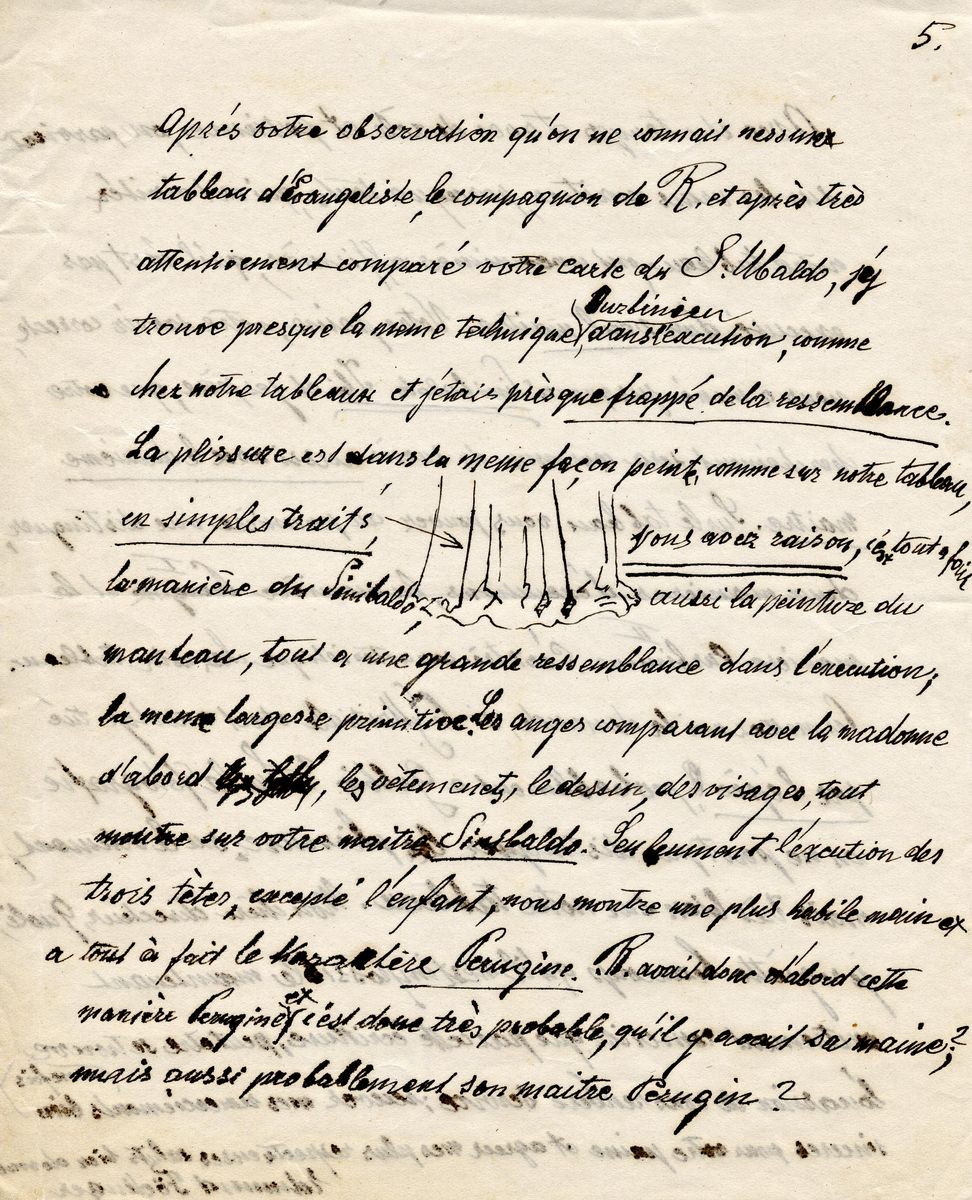 5.
Après votre observation qu'on ne connait nessune
tableau d'Evangeliste, le compagnion de R. et après très
attentivement comparé votre carte du S. Ubaldo, j'ey
Durbinien
trouve presque la meme technique dans l'éxecution, comme
chez notre tableaux et j'etais prèsque frappé de la ressemblance.
La plissure est dans la meme façon peint, comme sur notre tableau,
en simples traits,
vous avez raison, c'est tout a fait
la manière du Sinibaldo, aussi la peinture du
manteau, tout a une grande ressemblance dans l'éxecution,
la meme largesse primitive. Les anges comparant avec la madonne
d'abord, les vètements, le dessin, des visages, tout
montre sur votre maitre Sinibaldo. Seulement l'éxcution des
trois tètes, excepté l'enfant, nous montre une plus habile main et
a tout à fait le karaktère Perugine. R. avait donc d'abord cette
manière Perugine et c'est donc très probable, qu'il y avait sa maine,?
mais aussi probablement son maitre Perugin?